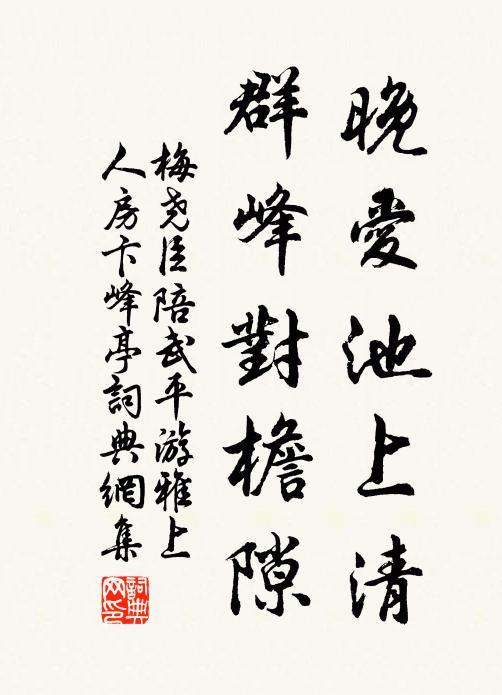 晚愛池上清
群峰對檐隙
梅尧臣陪武平游雅上
人房卞峰亭詞典網集
詞典網印